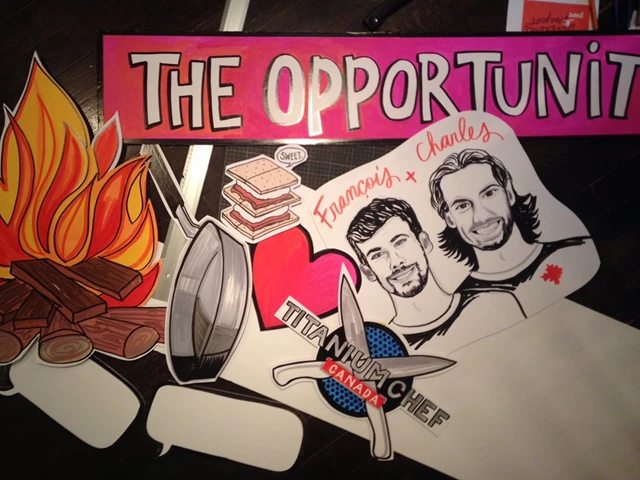 THE OPPORTUNIT
SWEET
François + Charles
TITANIUM CHEF
CANADA